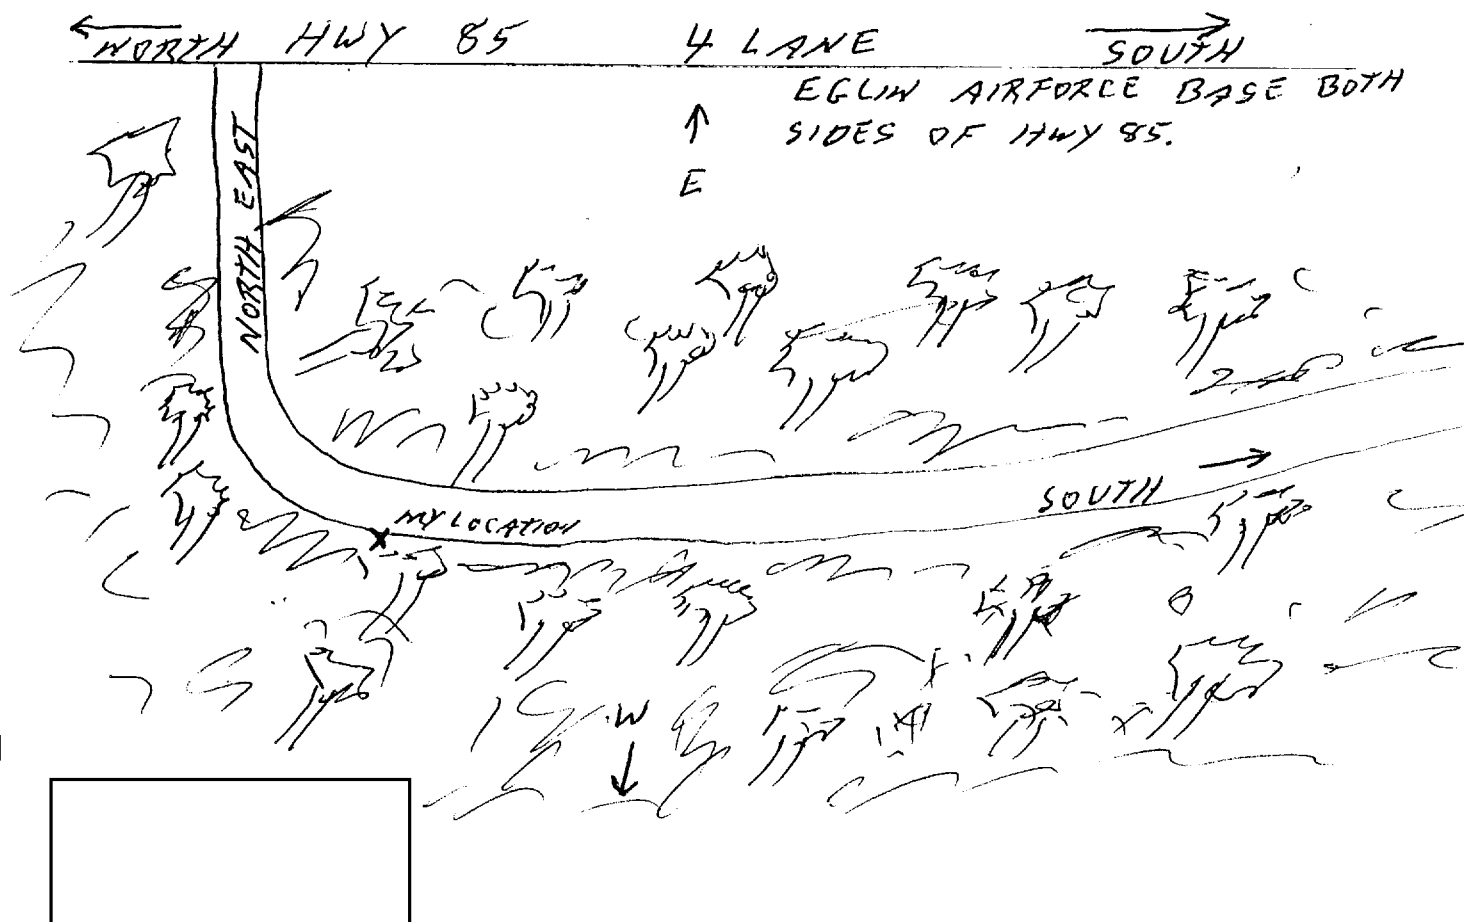 NORTH HWY 85 4 LANE SOUTH
EGLIN AIRFORCE BASE BOTH
SIDES OF HWY 85.
E
NORTH EAST
SOUTH
MY LOCATION
W